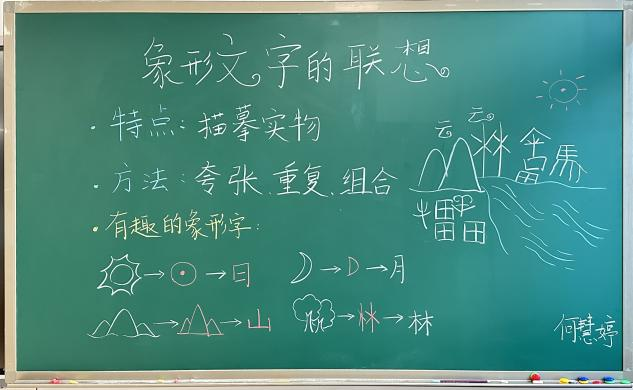 象形文字的联想
·特点:描摹实物
·方法:夸张、重复、组合
·有趣的象形字:
→ → 日
→ → 月
→ → 山
→ 林 → 林
云 云
林 伞 馬
田 田 田
何慧婷